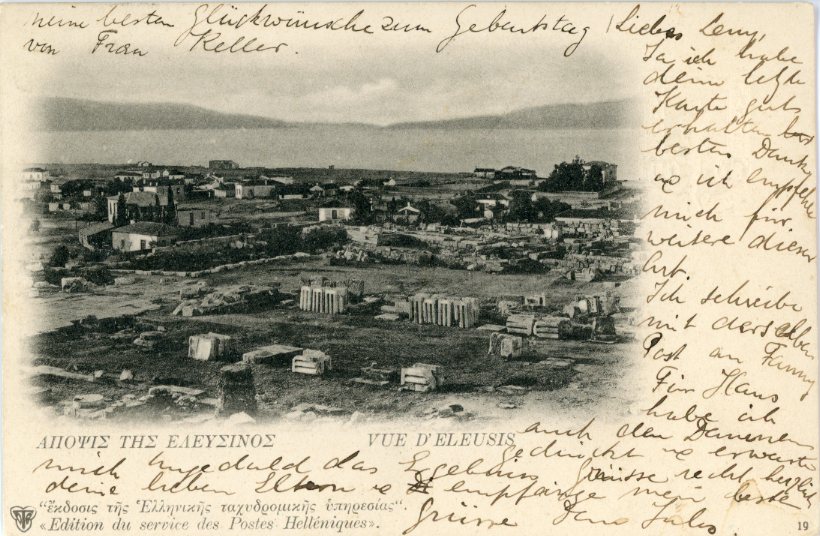 meine besten Glückwünsche zum Geburtstag
von Frau Keller.
Liebes Leny,
Ja ich habe
deine letzte
Karte gut
erhalten
besten Dank
ich empfehle
mich für
weitere dieser
Art.
Ich schreibe
mit derselben
Post an Fanny
Für Hans
habe ich
auch den Daumen
gedrückt & erwarte
mit Ungeduld das Ergebnis Grüsse recht herzlich
deine lieben Eltern & empfange meine beste
Grüsse Dein Jules
ΑΠΟΨΙΣ ΤΗΣ ΕΛΕΥΣΙΝΟΣ
VUE D'ELEUSIS
"ἔκδοσις τῆς Ἑλληνικῆς ταχυδρομικῆς ὑπηρεσίας".
«Edition du service des Postes Helléniques».
19